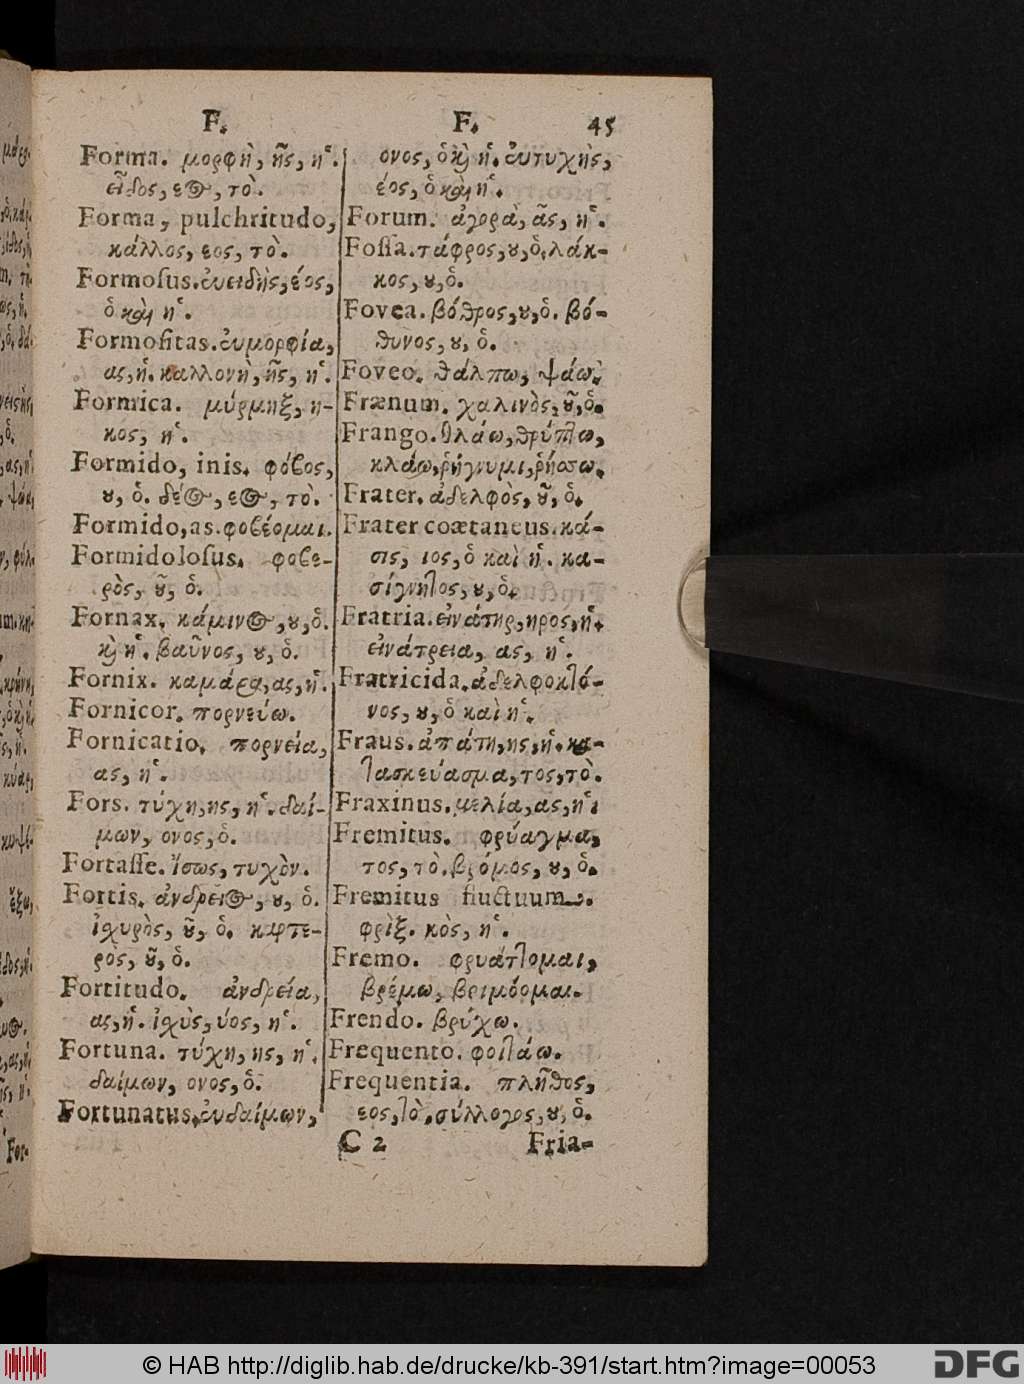 F. F. 45
Forma. μορφὴ, ῆς, ἡ.
εἶδος, εος, τὸ.
Forma, pulchritudo,
κάλλος, εος, τὸ.
Formoſus. ἐυειδὴς, έος,
ὁ καὶ ἡ.
Formoſitas. ἐυμορφία,
ας, ἡ. καλλονὴ, ῆς, ἡ.
Formica. μύρμηξ, η-
κος, ἡ.
Formido, inis. φόβος,
ου, ὁ. δέος, εος, τὸ.
Formido, as. φοβέομαι.
Formidoloſus. φοβε-
ρὸς, οῦ, ὁ.
Fornax. κάμινος, ου, ὁ.
καὶ ἡ. βαῦνος, ου, ὁ.
Fornix. καμάρα, ας, ἡ.
Fornicor. πορνεύω.
Fornicatio. πορνεία,
ας, ἡ.
Fors. τύχη, ης, ἡ. δαί-
μων, ονος, ὁ.
Fortaſſe. ἴσως, τυχὸν.
Fortis. ἀνδρεῖος, ου, ὁ.
ἰχυρὸς, οῦ, ὁ. καρτε-
ρὸς, οῦ, ὁ.
Fortitudo. ἀνδρεία,
ας, ἡ. ἰχὺς, ύος, ἡ.
Fortuna. τύχη, ης, ἡ.
δαίμων, ονος, ὁ.
Fortunatus. ἐυδαίμων,
ονος, ὁ καὶ ἡ. ἐυτυχὴς,
έος, ὁ καὶ ἡ.
Forum. ἀγορὰ, ᾶς, ἡ.
Foſſa. τάφρος, ου, ὁ. λάκ-
κος, ου, ὁ.
Fovea. βόθρος, ου, ὁ. βό-
θυνος, ου, ὁ.
Foveo. θάλπω, ψάω.
Frænum. χαλινὸς, οῦ, ὁ.
Frango. θλάω, θρύπτω,
κλάω, ῥήγνυμι, ῥήσσω.
Frater. ἀδελφὸς, οῦ, ὁ.
Frater coætaneus. κά-
σις, ιος, ὁ καὶ ἡ. κα-
σίγνητος, ου, ὁ.
Fratria. εἰνάτηρ, ηρος, ἡ.
εἰνάτρεια, ας, ἡ.
Fratricida. ἀδελφοκτό-
νος, ου, ὁ καὶ ἡ.
Fraus. ἀπάτη, ης, ἡ. κα-
τασκεύασμα, τος, τὸ.
Fraxinus. μελία, ας, ἡ.
Fremitus. φρύαγμα,
τος, τὸ. βρόμος, ου, ὁ.
Fremitus fluctuum.
φρὶξ. κὸς, ἡ.
Fremo. φρυάττομαι,
βρέμω, βριμόομαι.
Frendo. βρύχω.
Frequento. φοιτάω.
Frequentia. πλῆθος,
εος, τὸ. σύλλογος, ου, ὁ.
C 2 Fria-
For-
© HAB http://diglib.hab.de/drucke/kb-391/start.htm?image=00053
DFG